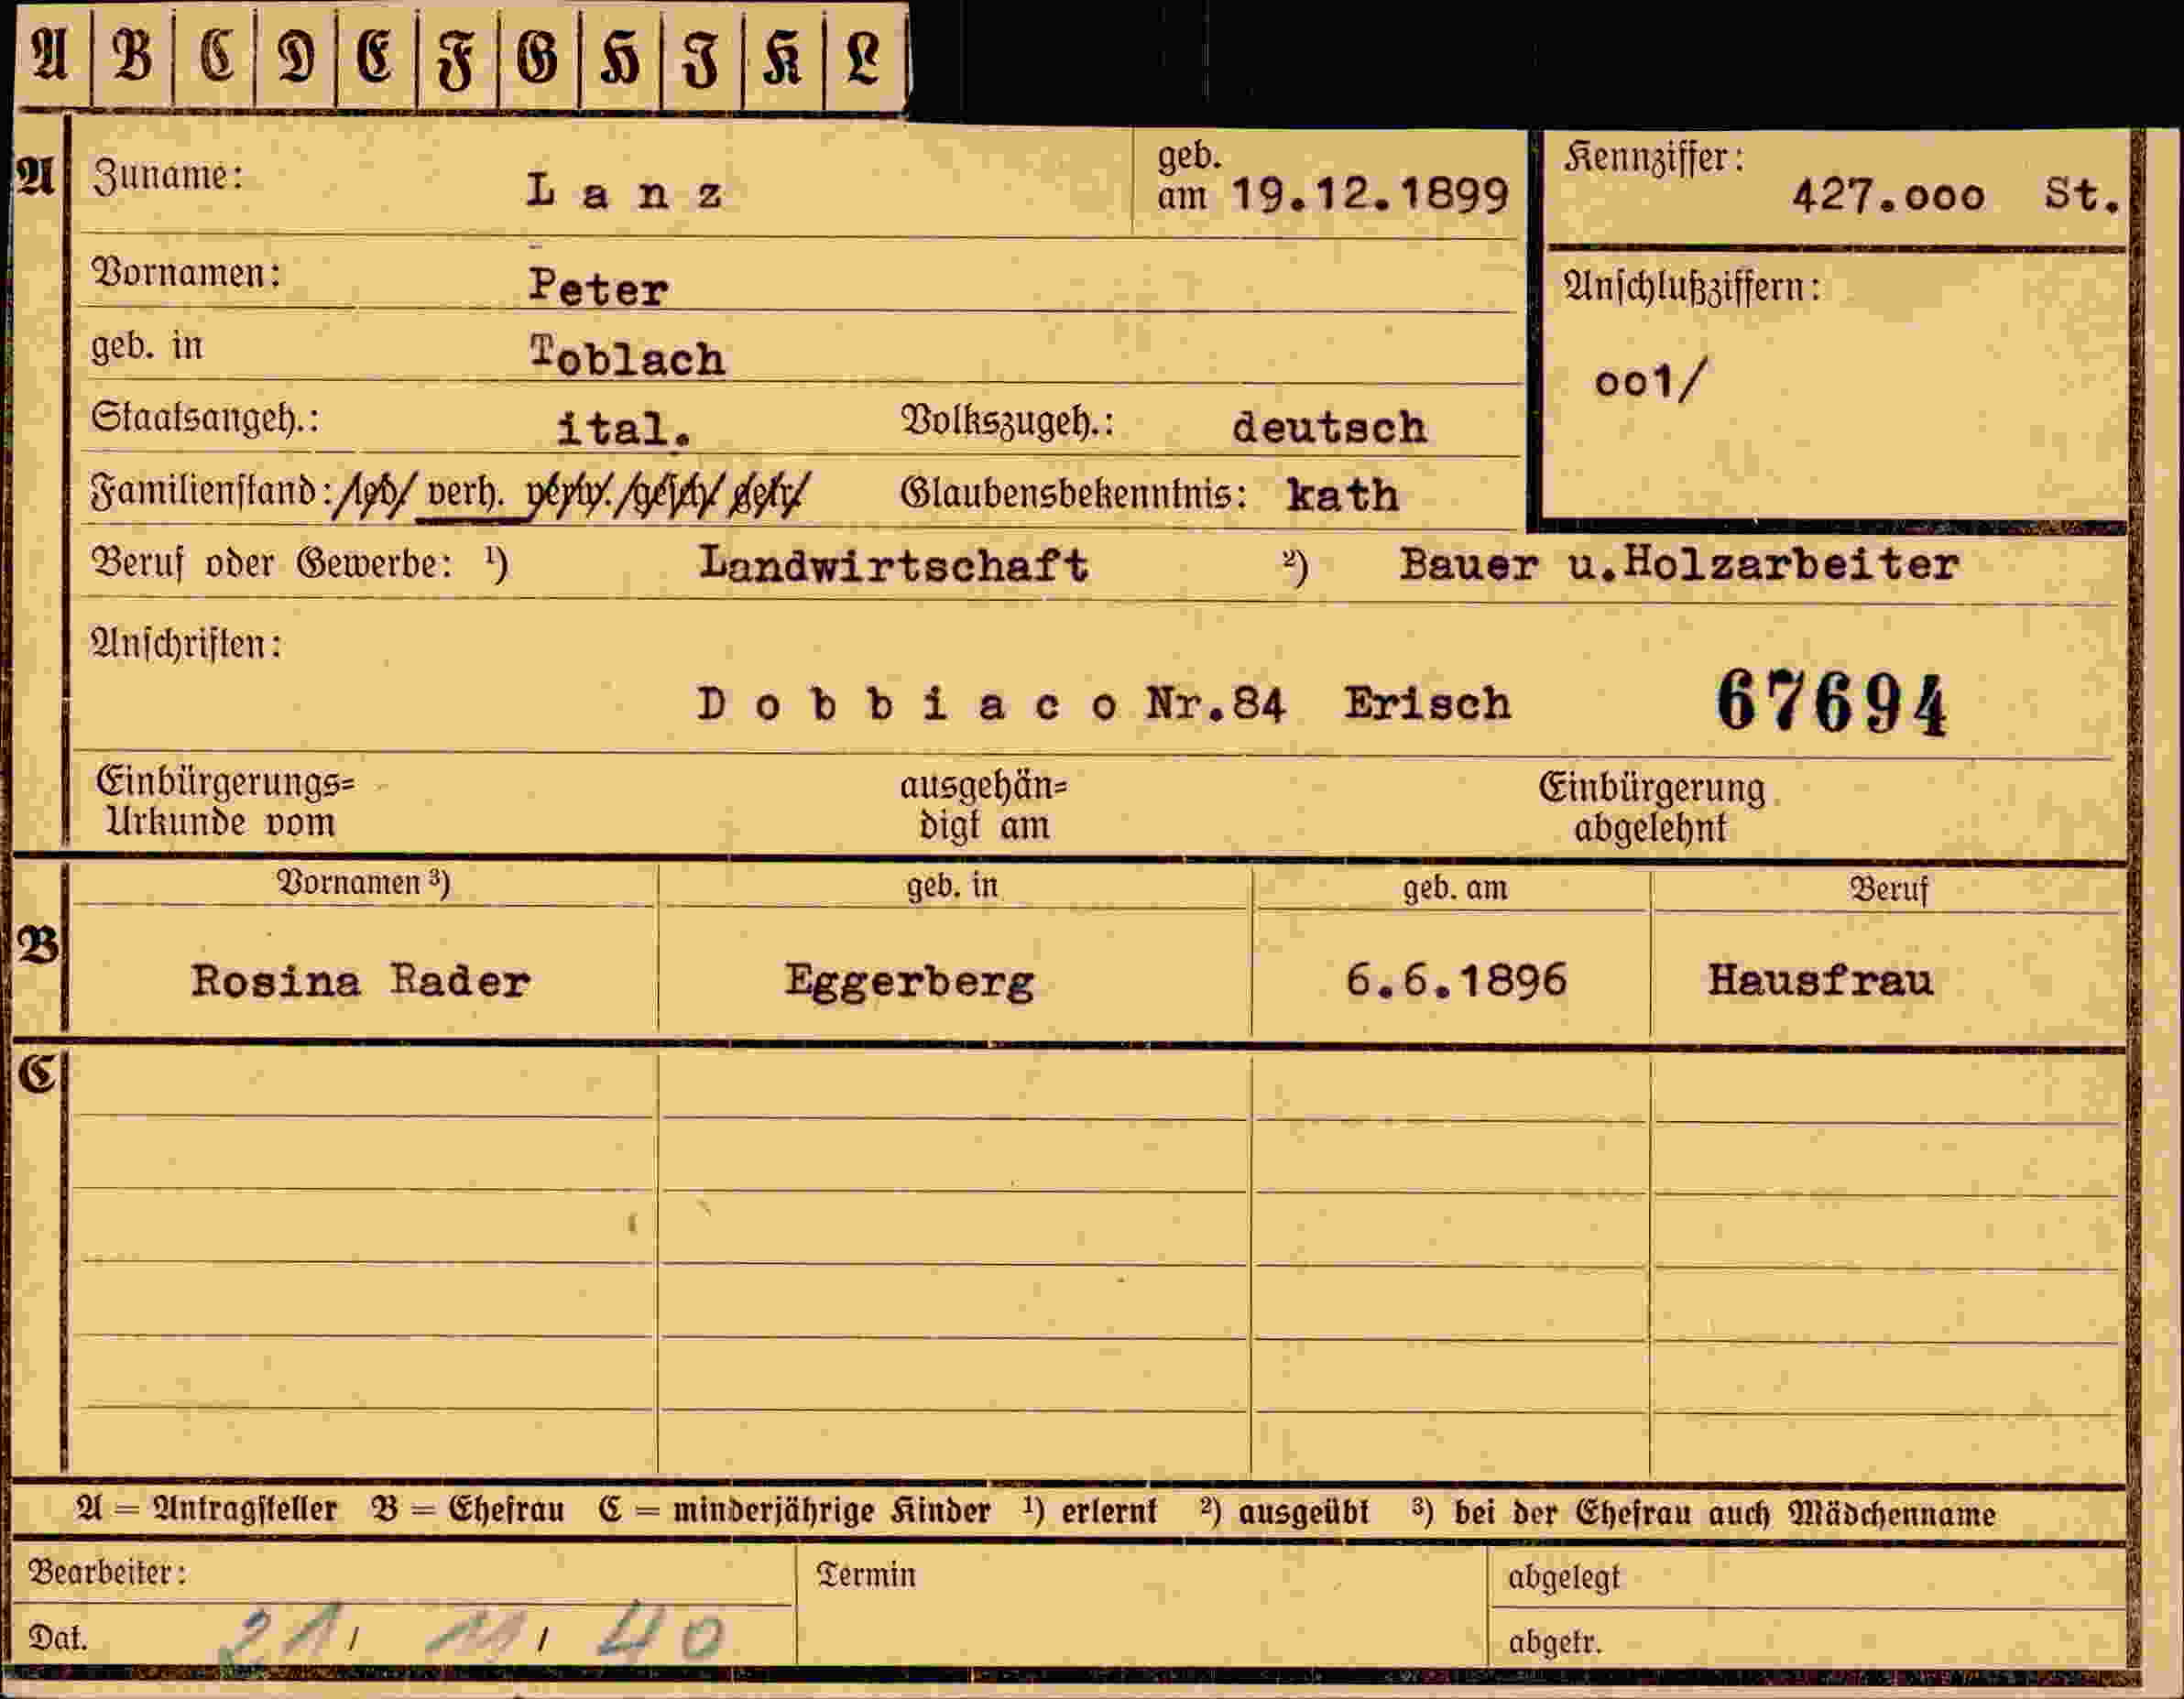 A B C D E F G H I K L
A Zuname: Lanz geb. am 19.12.1899 Kennziffer: 427.000 St.
Vornamen: Peter Anschlußziffern:
geb. in Toblach oo1/
Staatsangeh.: ital. Volkszugeh.: deutsch
Familienstand: led. verh. verw. gesch. getr. Glaubensbekenntnis: kath
Beruf oder Gewerbe: 1) Landwirtschaft 2) Bauer u.Holzarbeiter
Anschriften:
Dobbiaco Nr.84 Erisch 67694
Einbürgerungs= ausgehän= Einbürgerung
Urkunde vom digt am abgelehnt
B Vornamen 3) geb. in geb. am Beruf
Rosina Rader Eggerberg 6.6.1896 Hausfrau
C
A = Antragsteller B = Ehefrau C = minderjährige Kinder 1) erlernt 2) ausgeübt 3) bei der Ehefrau auch Mädchenname
Bearbeiter: Termin abgelegt
Dat. 21/ 11/ 40 abgetr.